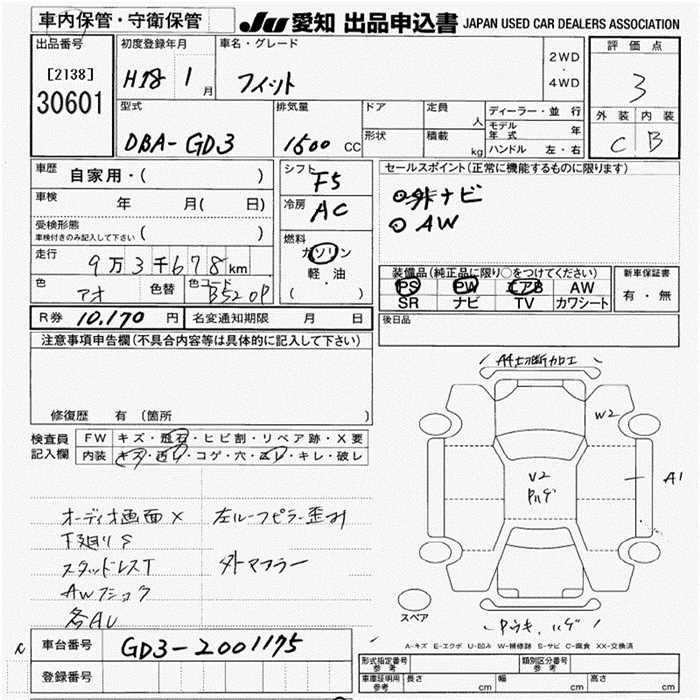 車内保管・守衛保管 JU 愛知 出品申込書 JAPAN USED CAR DEALERS ASSOCIATION
出品番号 初度登録年月 車名・グレード 2WD・4WD 評価点
[2138] H18 1月 フィット 3
30601 型式 排気量 ドア 定員 人 ディーラー・並行 外装 内装
DBA-GD3 1500 CC 形状 積載 kg モデル年式 年 C B
ハンドル 左・右
車歴 自家用・( ) シフト F5 セールスポイント(正常に機能するものに限ります)
車検 年 月( 日) 冷房 AC 外ナビ
受検形態 AW
車検付きのみ記入して下さい ( )
走行 9万3千678km 燃料 ガソリン
軽・油
( )
装備品(純正品に限り○をつけてください) 新車保証書
色 アオ 色替 色コード B520P PS PW エアB AW 有・無
SR ナビ TV カワシート
R券 10,170円 名変通知期限 月 日 後日品
注意事項申告欄(不具合内容等は具体的に記入して下さい)
修復歴 有 (箇所 )
検査員 FW キズ・飛石・ヒビ割・リペア跡・X要
記入欄 内装 コゲ・穴・ キレ・破レ
A4切断加工
W2
A1
V2
ハゲ
オーディオ画面× 左ルーフピラー歪み
下廻りS
スタッドレスT 外マフラー
AW
各AU
スペア
ハゲ
車台番号 GD3-2001175
登録番号
A-キズ E-エクボ U-凹み W-補修跡 S-サビ C-腐食 XX-交換済
形式指定番号 参考 類別区分番号 参考
車庫証明用 参考 長さ cm 幅 cm 高さ cm